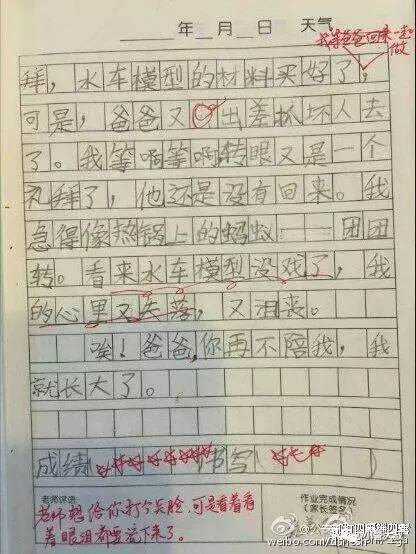 年 月 日 天气
我等爸爸回来一起做
拜，水车模型的材料买好了，
可是，爸爸又出差抓坏人去
了。我等啊等啊转眼又是一个
礼拜了，他还是没有回来。我
急得像热锅上的蚂蚁——团团
转。看来水车模型没戏了，我
的心里又失落，又沮丧。
唉！爸爸，你再不陪我，我
就长大了。
成绩 书写
老师评语
老师想给你打个笑脸，可是看着看
着眼泪都要流下来了。
作业完成情况
(家长签名)
weibo.com/